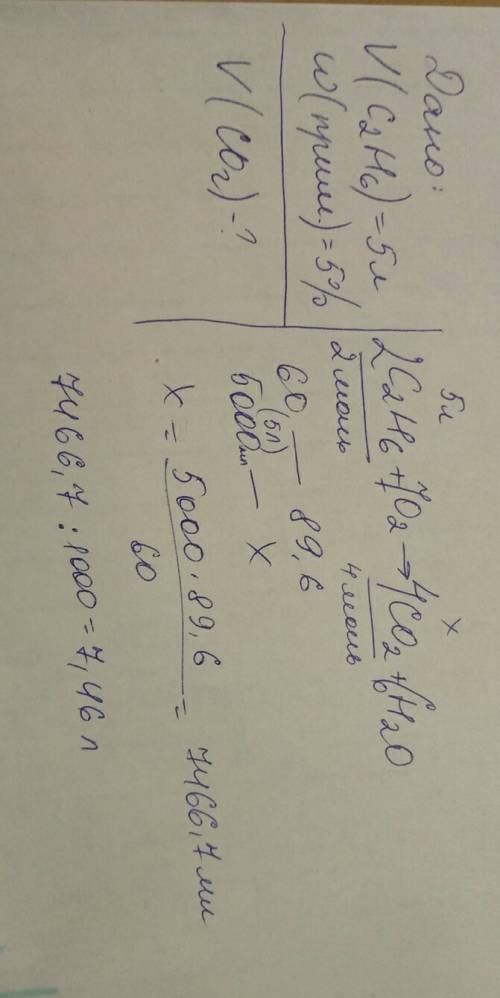 Дано:
V(C2H6)=5л
w(прим.)=5%
V(CO2)-?
5л x
2C2H6+7O2→4CO2+6H2O
2моль 4моль
60 — 89,6
(5л)
5000мл — x
x = 5000·89,6 / 60 = 7466,7мл
7466,7:1000=7,46л